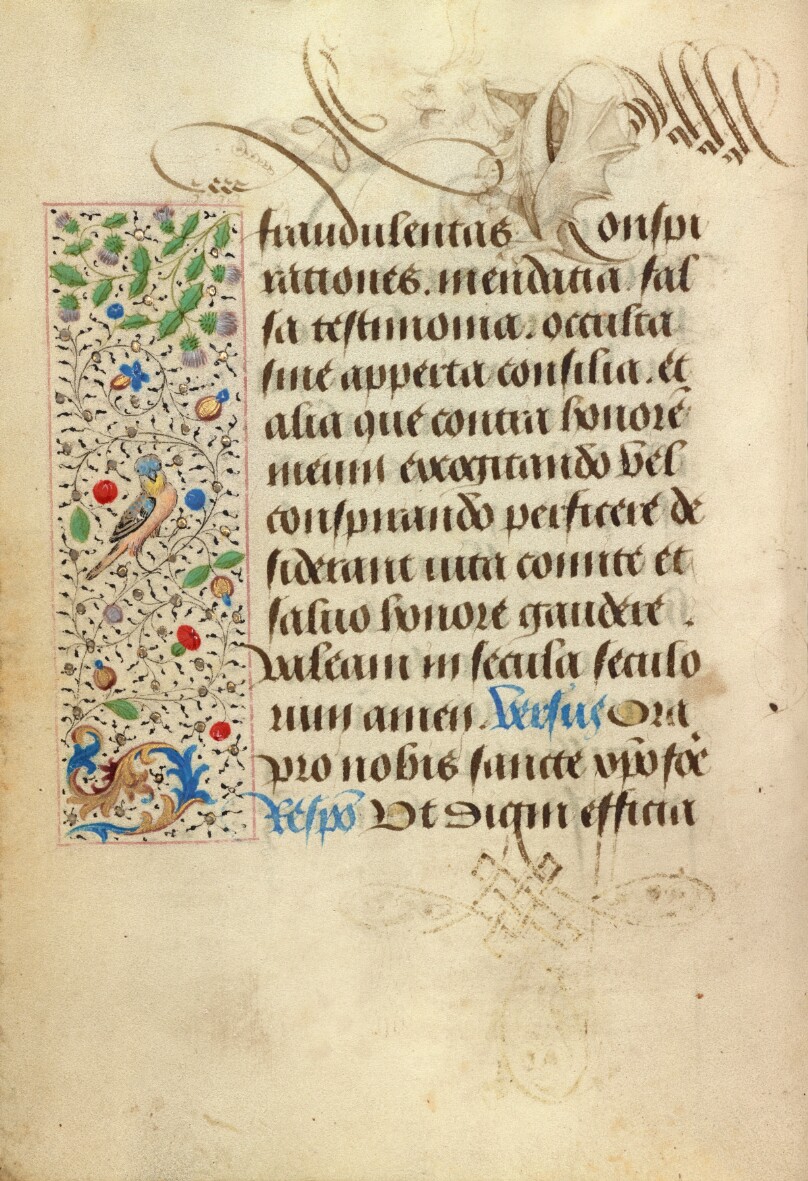 fraudulentas Conspi
rationes. mendatia. fal
sa testimonia. occulta
siue apperta consilia. et
alia que contra honorē
meum exxogitando vel
conspirando perficere de
siderant iuta comite et
saluo honore gaudere .
valeam in secula seculo
rum amen. Versus Ora
pro nobis sancte xp̄ofore
Respō Vt digni efficia